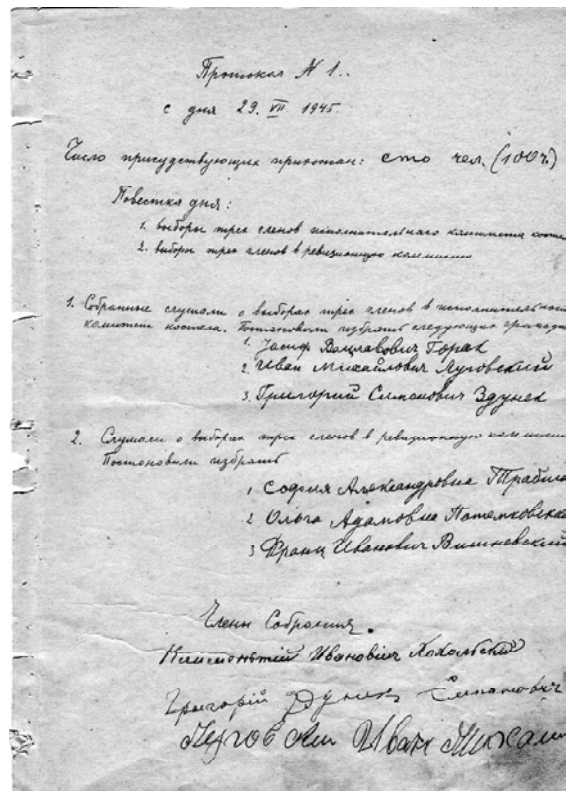 Протокол № 1.
с дня 29. VII 1945.
Число присудствующих прихожан: сто чел. (100 ч.)
Повестка дня:
1. выборы трех членов исполнительного комитета
2. выборы трех членов в ревизионную комиссию
1. Собранные слушали о выборах трех членов в исполнительной
комитет костела. Постановили избрать следующих
1. Иосиф Вацлавович Горак
2. Иван Михайлович Луговский
3. Григорий Симанович Здунек
2. Слушали о выборах трех членов в ревизионную комиссию
Постановили избрать
1 София Александровна
2 Ольга Адамовна Потемковска
3 Франц Иванович Вишневский
Члены Собрания.
Ивановіч
Григорій Симановіч
Иван